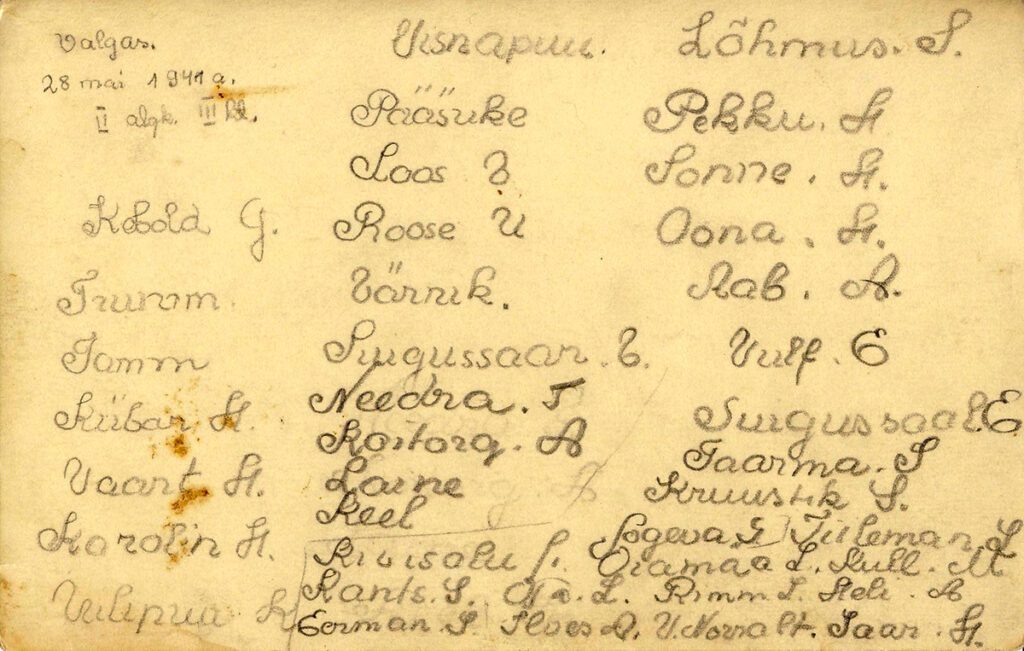 Valgas.
28 mai 1941 a.
II algk. III kl.
Kobold G.
Trumm.
Tamm
Kübar H.
Vaart H.
Karolin H.
Visnapuu.
Pääsuke
Soos V
Roose U
Värnik.
Surgussaar. V.
Needra. T
Kostorg. A
Laine
Keel
Kivisalu
Kants. S.
Eerman
Lõhmus. S.
Pekku. H
Sonne. H.
Oona. H.
Rab. A.
Vulf. E
Surgussaar. E
Taarma. S
Kruustik S.
Sogeva Tuleman
Oramaa L. Kull. M
Rimm L. Heli. A
U. Norralt. Saar. H.